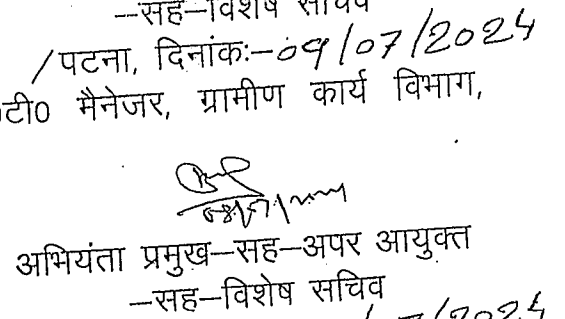 –सह–विशेष सचिव
/पटना, दिनांकः–09/07/2024
टी0 मैनेजर, ग्रामीण कार्य विभाग,
अभियंता प्रमुख–सह–अपर आयुक्त
–सह–विशेष सचिव
/2024